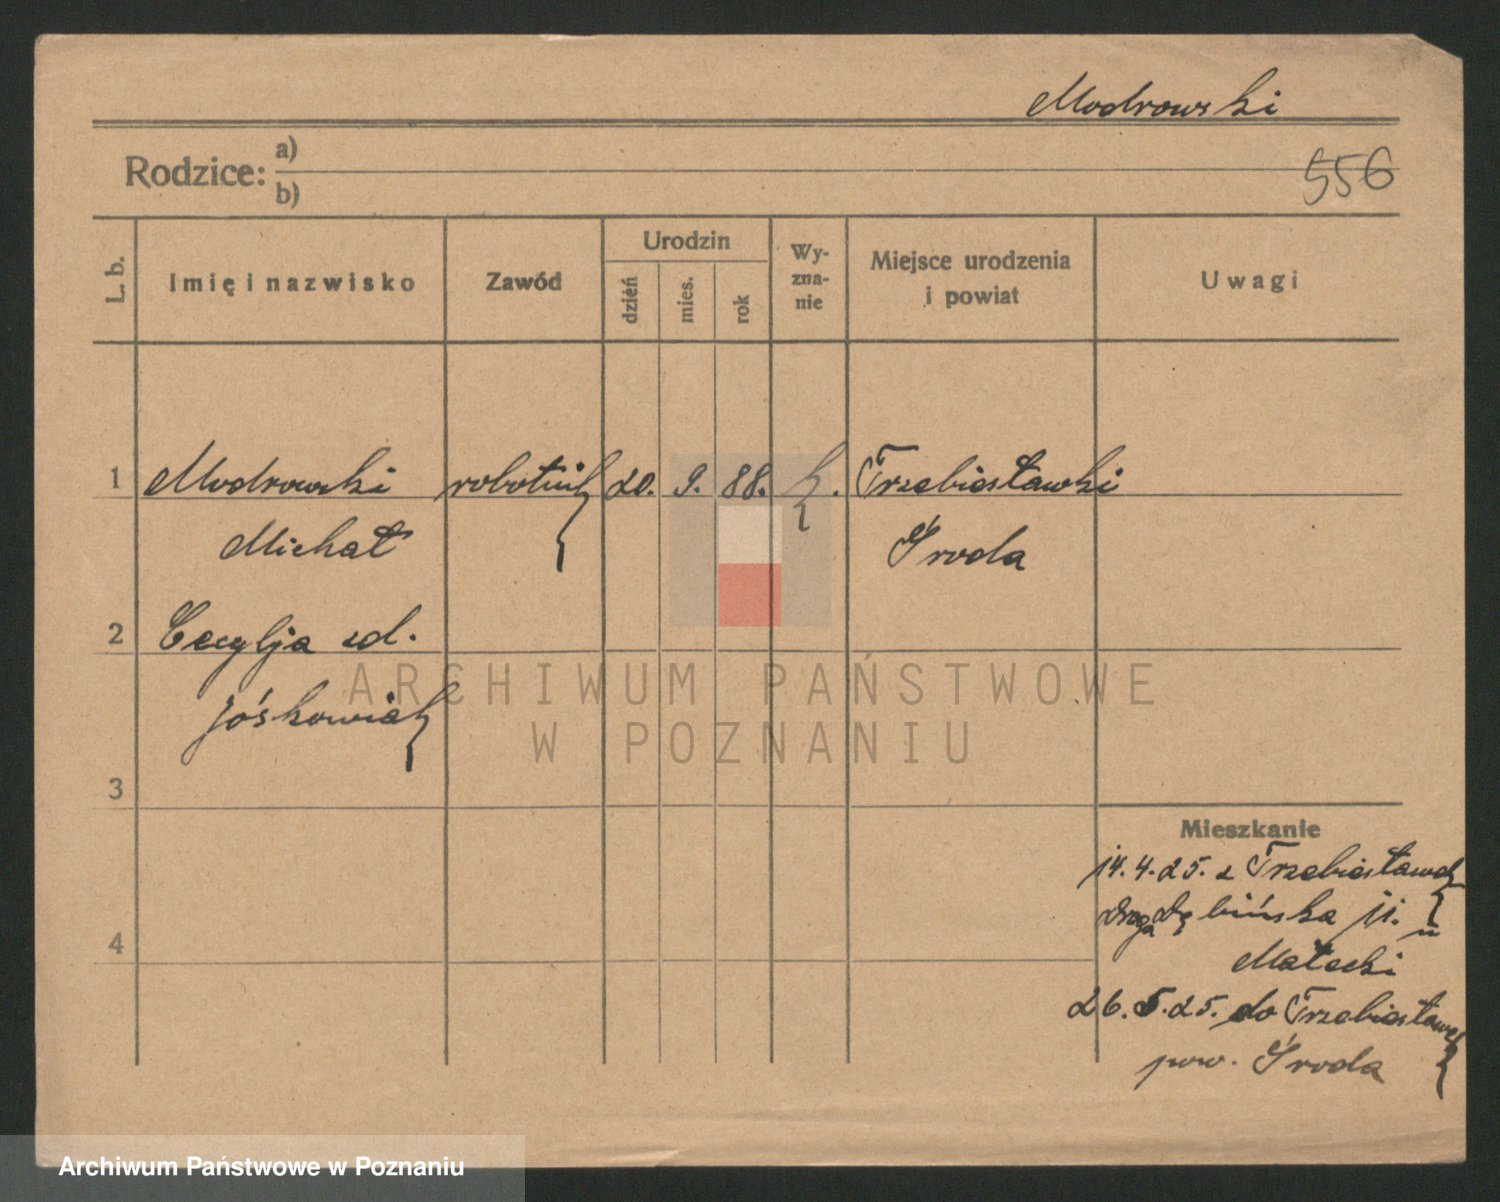 Modrowski
Rodzice: a)
b)
556
L. b.
Imię i nazwisko
Zawód
Urodzin
dzień
mies.
rok
Wy-
zna-
nie
Miejsce urodzenia
i powiat
Uwagi
1 Modrowski robotnik 20. 9. 88. k. Trzebiesławki
Michał Środa
2 Cecylja zd.
Jóśkowiak
3
Mieszkanie
14.4.25. z Trzebiesławek
droga Dębińska 11. u
Małecki
4
26.5.25. do Trzebiesławek
pow. Środa
ARCHIWUM PAŃSTWOWE
W POZNANIU
Archiwum Państwowe w Poznaniu